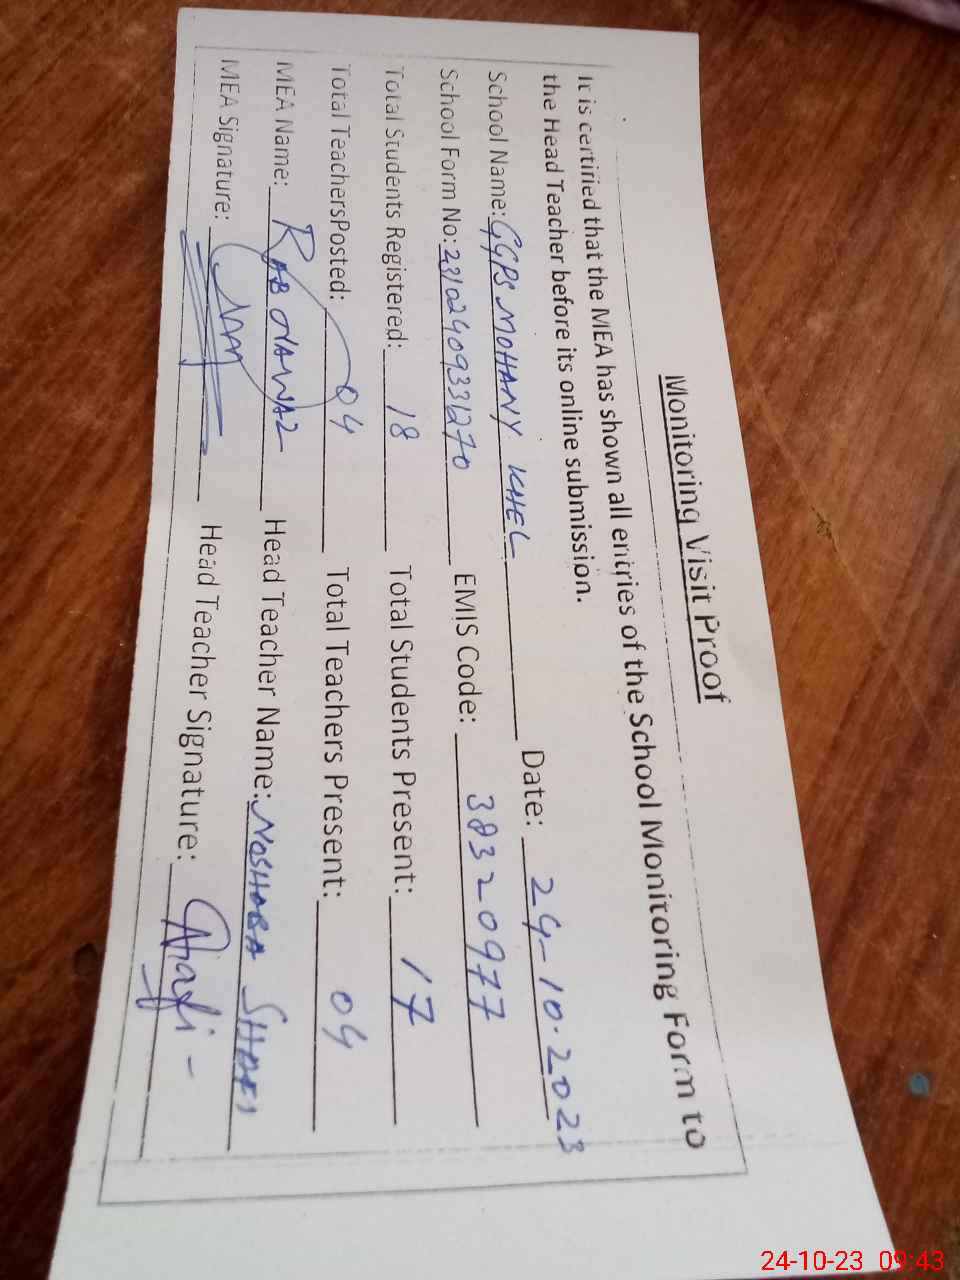 Monitoring Visit Proof
It is certified that the MEA has shown all entries of the School Monitoring Form to
the Head Teacher before its online submission.
School Name: GGPS MOHANY KHEL Date: 24-10-2023
School Form No: 23102409331270 EMIS Code: 38320977
Total Students Registered: 18 Total Students Present: 17
Total TeachersPosted: 04 Total Teachers Present: 04
MEA Name: RAB NAWAZ Head Teacher Name: NOSHABA SHAFI
MEA Signature: Head Teacher Signature: Shafi
24-10-23 09:43